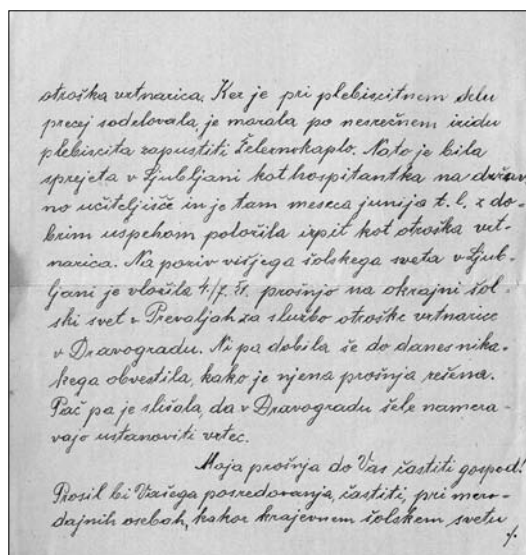 otroška vrtnarica. Ker je pri plebiscitnem delu
precej sodelovala, je morala po nesrečnem izidu
plebiscita zapustiti Železnokaplo. Nato je bila
sprejeta v Ljubljani kot hospitantka na držav
no učiteljišče in je tam meseca junija t. l. z do-
brim uspehom položila izpit kot otroška vrt-
narica. Na poziv višjega šolskega sveta v Ljub-
ljani je vložila prošnjo na okrajni šol-
ski svet v Prevaljah za službo otroške vrtnarice
v Dravogradu. Ni pa dobila še do danes nika-
kega obvestila, kako je njena prošnja rešena.
Pač pa je slišala, da v Dravogradu šele namera-
vajo ustanoviti vrtec.
Moja prošnja do Vas častiti gospod!
Prosil bi Vašega posredovanja, častiti, pri mero-
dajnih osebah, kakor krajevnem šolskem svetu
./.